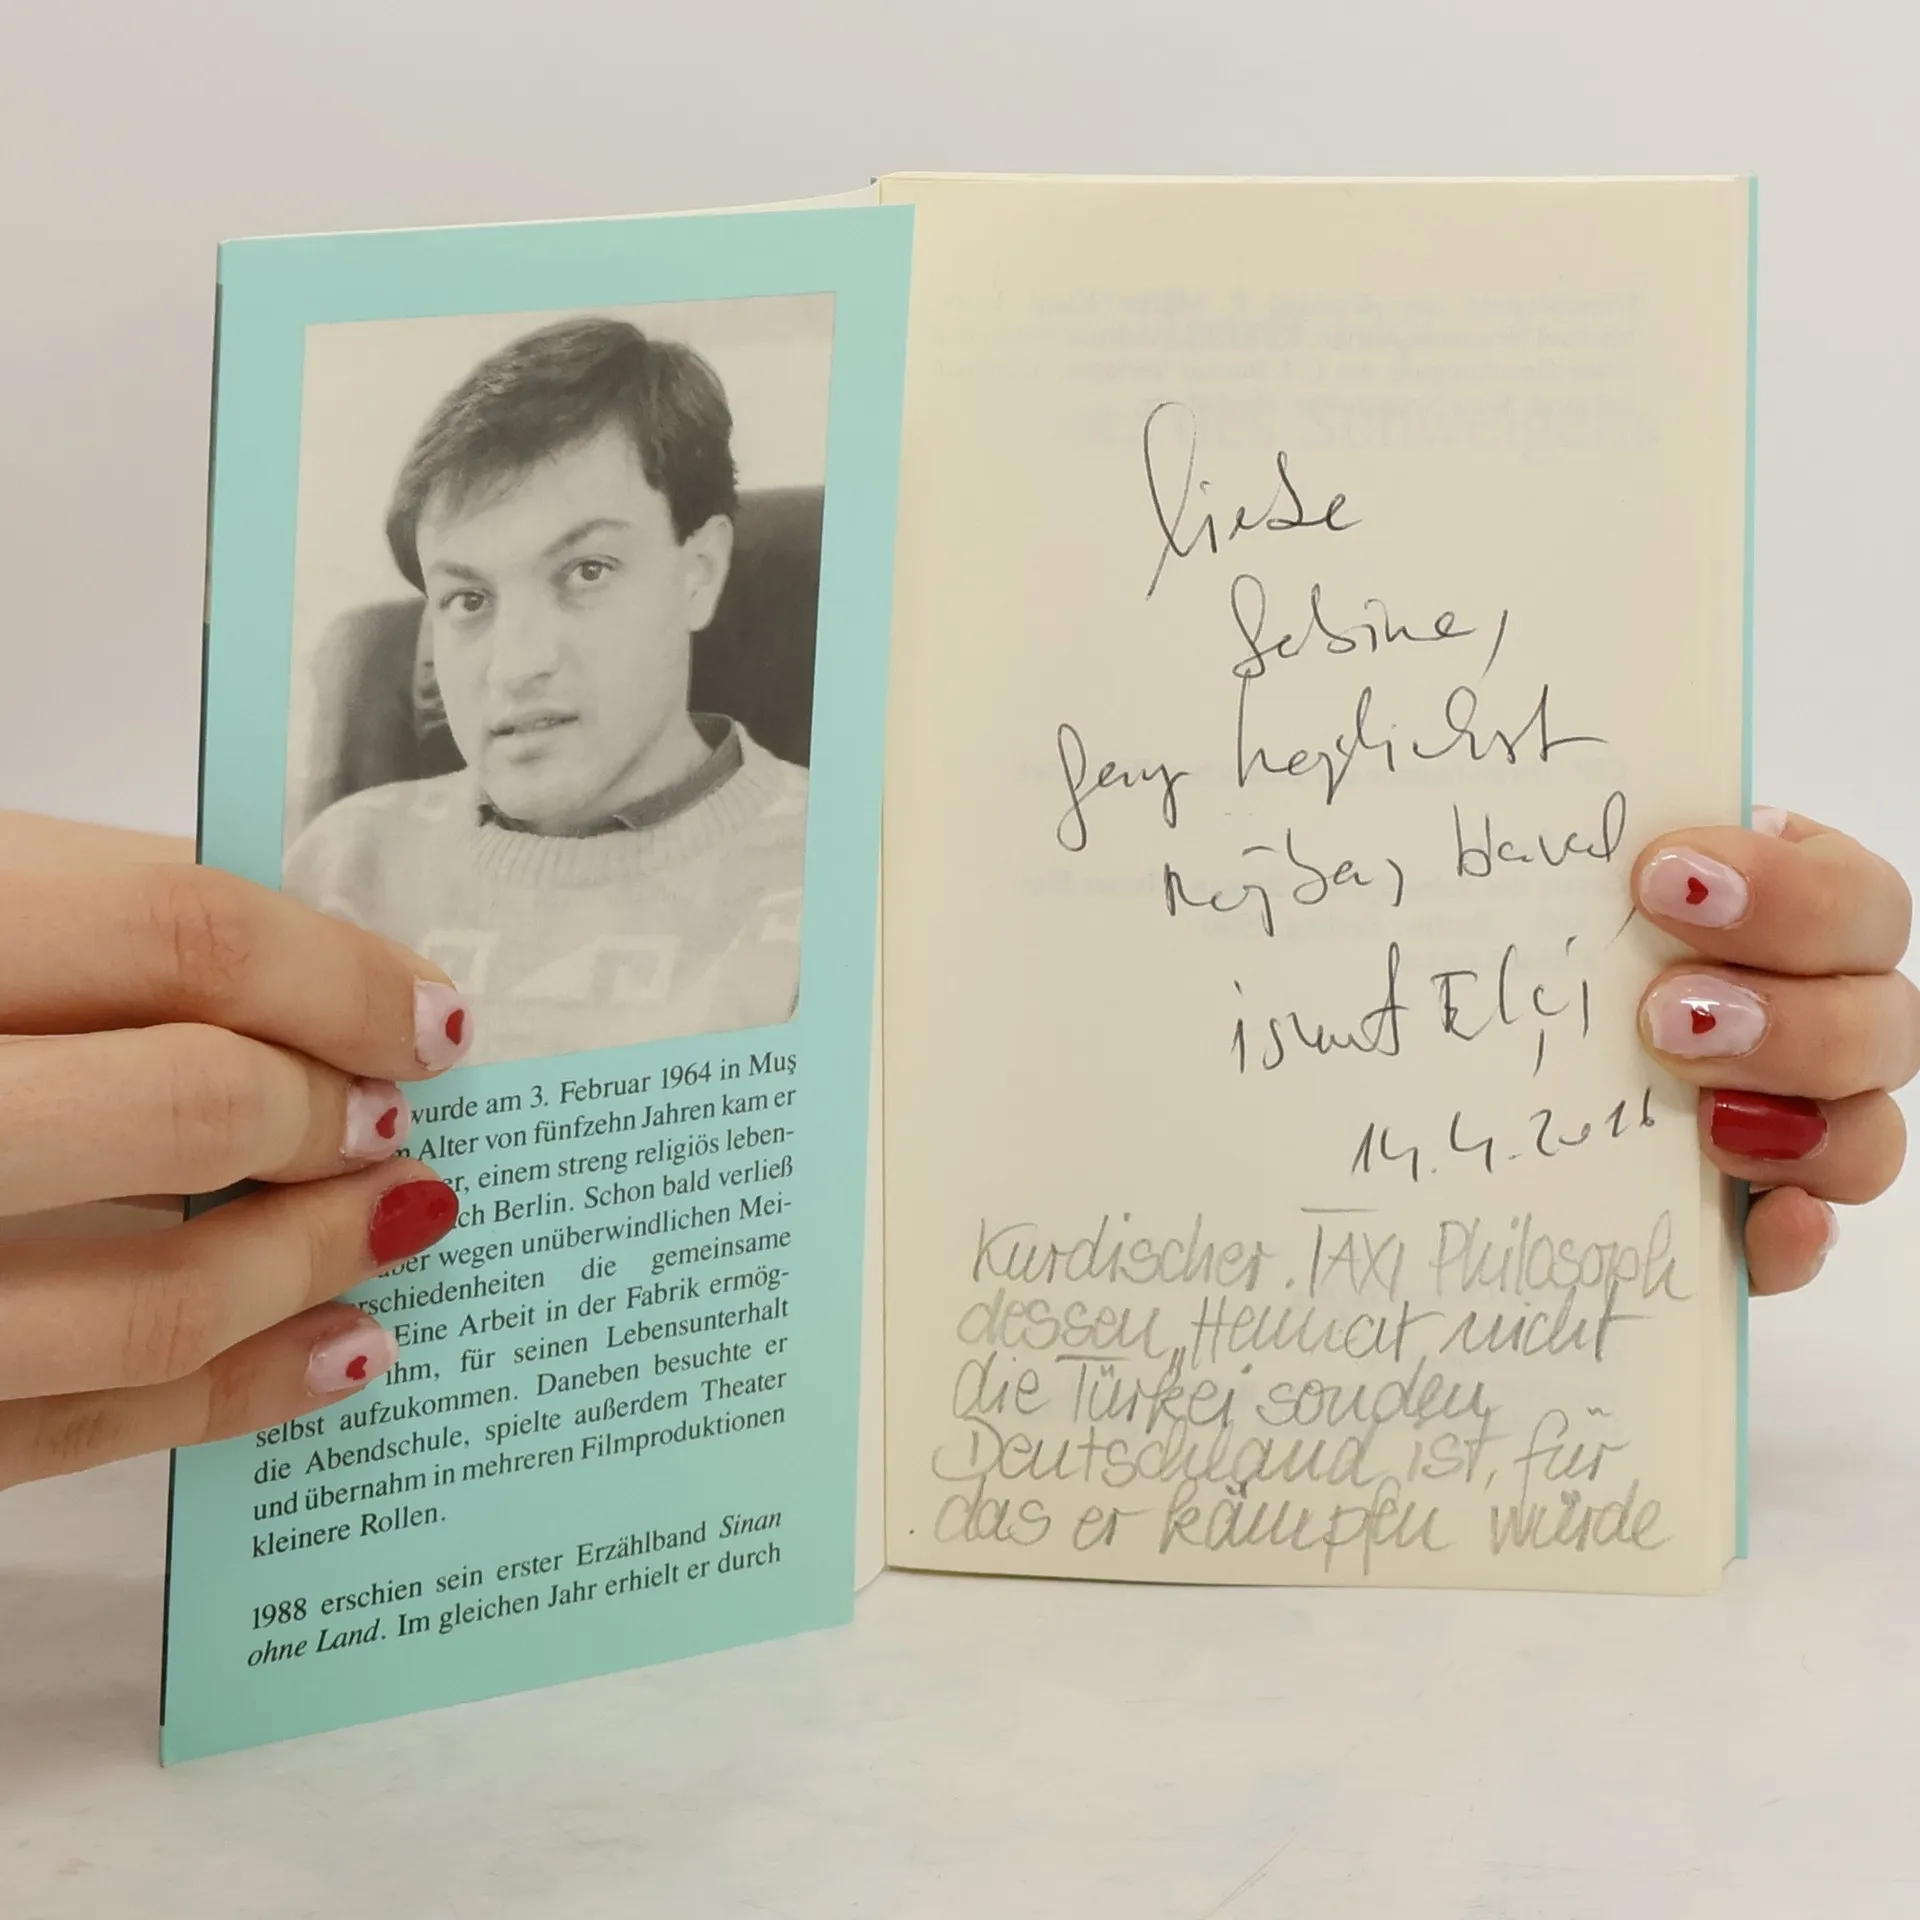 wurde am 3. Februar 1964 in Muş
Alter von fünfzehn Jahren kam er
er, einem streng religiös leben-
ch Berlin. Schon bald verließ
aber wegen unüberwindlichen Mei-
rschiedenheiten die gemeinsame
Eine Arbeit in der Fabrik ermög-
ihm, für seinen Lebensunterhalt
selbst aufzukommen. Daneben besuchte er
die Abendschule, spielte außerdem Theater
und übernahm in mehreren Filmproduktionen
kleinere Rollen.
1988 erschien sein erster Erzählband Sinan
ohne Land. Im gleichen Jahr erhielt er durch
des Schweigens
liebe
Sabine,
ganz herzlichst
Haval,
ismet Elçi
14.4.2016
Kurdischer. TAXI Philosoph
dessen „Heimat" nicht
die Türkei sondern
Deutschland ist, für
das er kämpfen würde